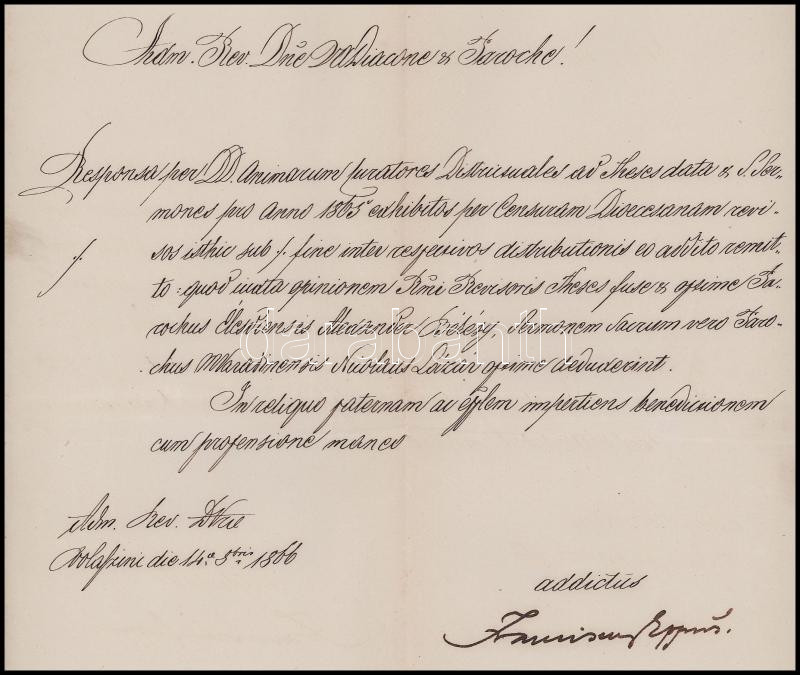 Adm. Rev. Dñe VADiacone & Paroche!
Responsa per DD. Animarum Curatores Districtuales ad Theses data & S. Ser-
mones pro Anno 1865 exhibitos per Censuram Dioecesanam revi-
./.
sos isthic sub ./. fine inter respectivos distributionis eo addito remit-
to: quod iuxta opinionem Rmi Revisoris Theses fuse & optime Pa-
rochus Élesdiensis Alexander Bélézy, Sermonem Sacrum vero Paro-
chus MVáradinensis Nicolaus Lázár optime deduxerint.
In reliquo paternam ac epplem impertiens benedictionem
cum propensione maneo
Adm. Rev. DVrae
Colaszini die 14a 8bris 1866
addictus
Franciscus Eppus.
databanti